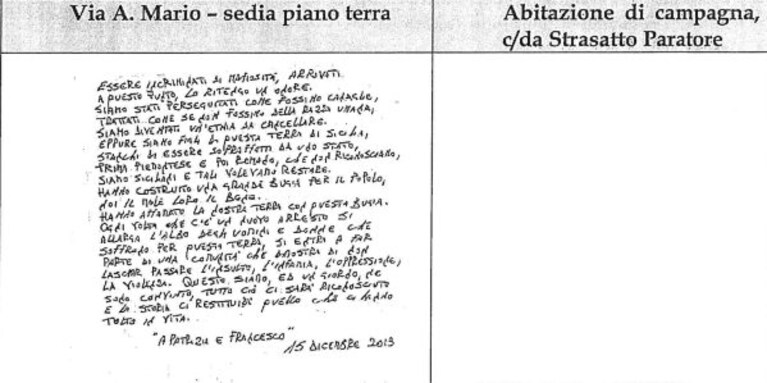 Via A. Mario – sedia piano terra
Abitazione di campagna,
c/da Strasatto Paratore
ESSERE INCRIMINATI DI MAFIOSITÀ, ARRIVATI
A QUESTO PUNTO, LO RITENGO UN ONORE.
SIAMO STATI PERSEGUITATI COME FOSSIMO CANAGLIE,
TRATTATI COME SE NON FOSSIMO DELLA RAZZA UMANA,
SIAMO DIVENTATI UN'ETNIA DA CANCELLARE.
EPPURE SIAMO FIGLI DI QUESTA TERRA DI SICILIA,
STANCHI DI ESSERE SOPRAFFATTI DA UNO STATO,
PRIMA PIEMONTESE E POI ROMANO, CHE NON RICONOSCIAMO,
SIAMO SICILIANI E TALI VOLEVAMO RESTARE.
HANNO COSTRUITO UNA GRANDE BUGIA PER IL POPOLO,
NOI IL MALE LORO IL BENE.
HANNO AFFAMATO LA NOSTRA TERRA CON QUESTA BUGIA.
OGNI VOLTA CHE C'È UN NUOVO ARRESTO SI
ALLARGA L'ALBO DEGLI UOMINI E DONNE CHE
SOFFRONO PER QUESTA TERRA, SI ENTRA A FAR
PARTE DI UNA COMUNITÀ CHE DIMOSTRA DI NON
LASCIAR PASSARE L'INSULTO, L'INFAMIA, L'OPPRESSIONE,
LA VIOLENZA. QUESTO SIAMO, ED UN GIORNO, NE
SONO CONVINTO, TUTTO CIÒ CI SARÀ RICONOSCIUTO
E LA STORIA CI RESTITUIRÀ QUELLO CHE CI HANNO
TOLTO IN VITA.
"A PATRIZIA E FRANCESCO"
15 DICEMBRE 2013